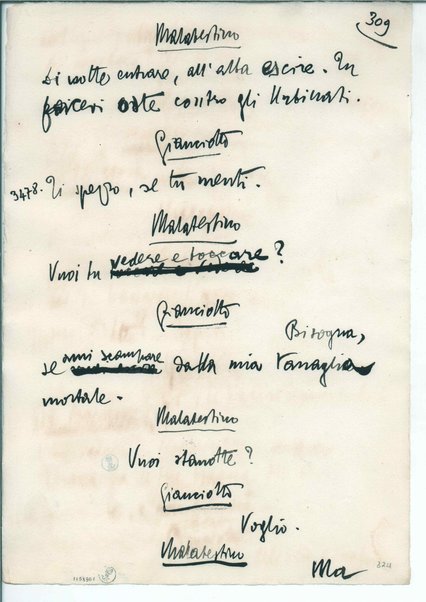 309
Malatestino
di notte entrare, all'alba escire. Tu
facevi oste contro gli Urbinati.
Gianciotto
3478. Ti spezzo, se tu menti.
Malatestino
Vuoi tu vedere e toccare?
Gianciotto
Bisogna,
se ami scampare dalla mia tanaglia
mortale.
Malatestino
Vuoi stanotte?
Gianciotto
Voglio.
Malatestino
Ma
824